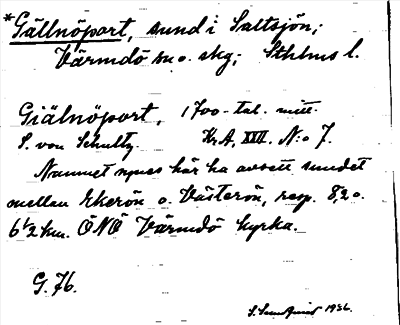 *Gällnöport, sund i Saltsjön;
Värmdö sn o. skg; Sthlms l.
Giälnöport, 1700-tal. mitt.
S. von Schultz. KrA, XXII, N:o 7.
Namnet synes här ha avsett sundet
mellan Ekerön o. Västerön, resp. 8,2 o.
6 1/2 km. ÖNÖ Värmdö kyrka.
G. 76.
S. 1936.